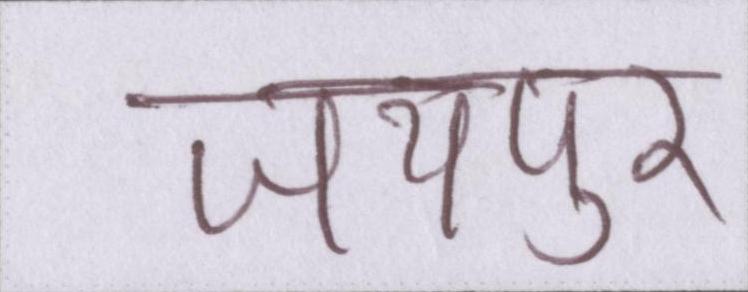 जयपुर